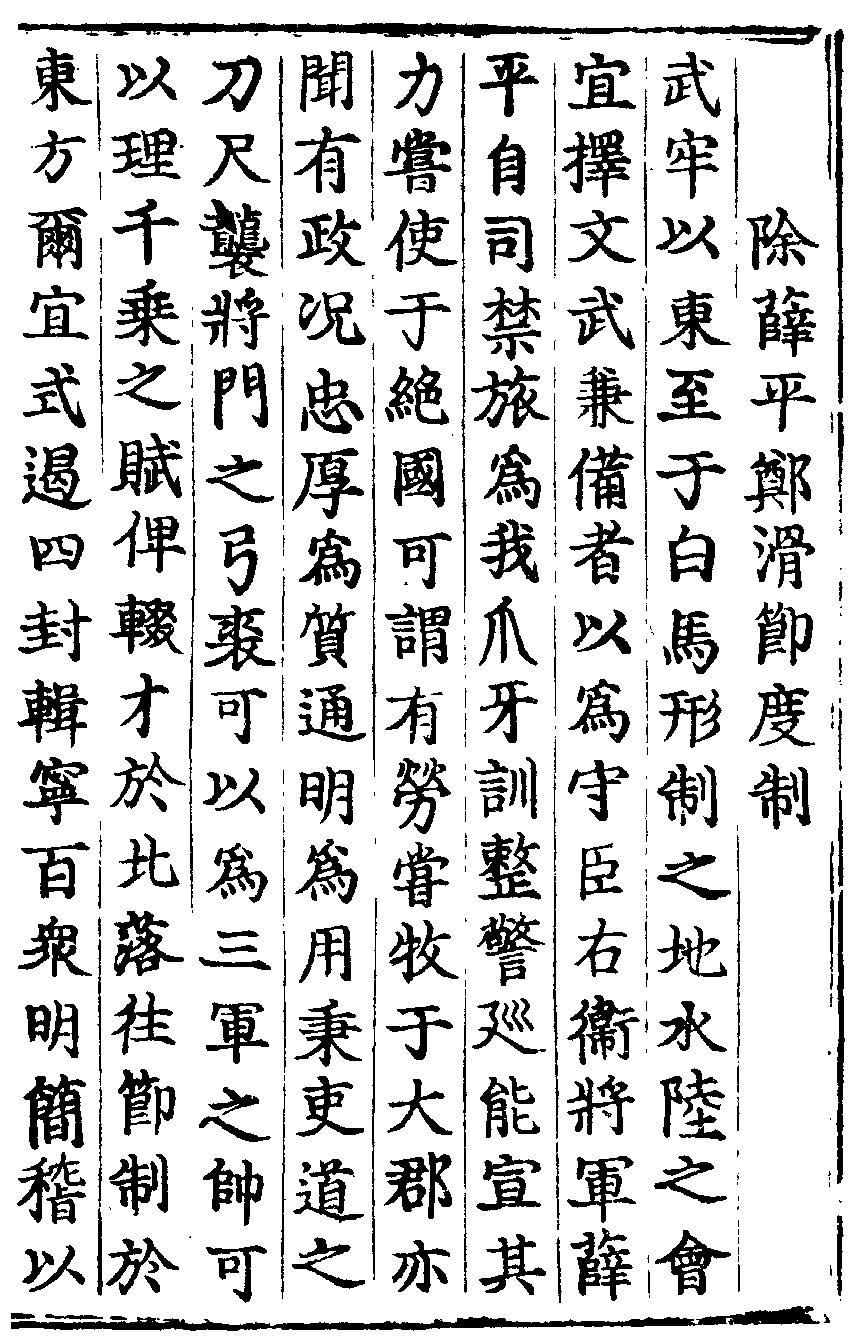 除薛平鄭滑節度制
武牢以東至于白馬形制之地水陸之會
宜擇文武兼備者以為守臣右衞將軍薛
平自司禁旅為我爪牙訓整警廵能宣其
力嘗使于絕國可謂有勞嘗牧于大郡亦
聞有政况忠厚為質通明為用秉吏道之
刀尺襲將門之弓裘可以為三軍之帥可
以理千乗之賦俾輟才於北落徃節制於
東方爾宜式遏四封輯寧百衆明簡稽以